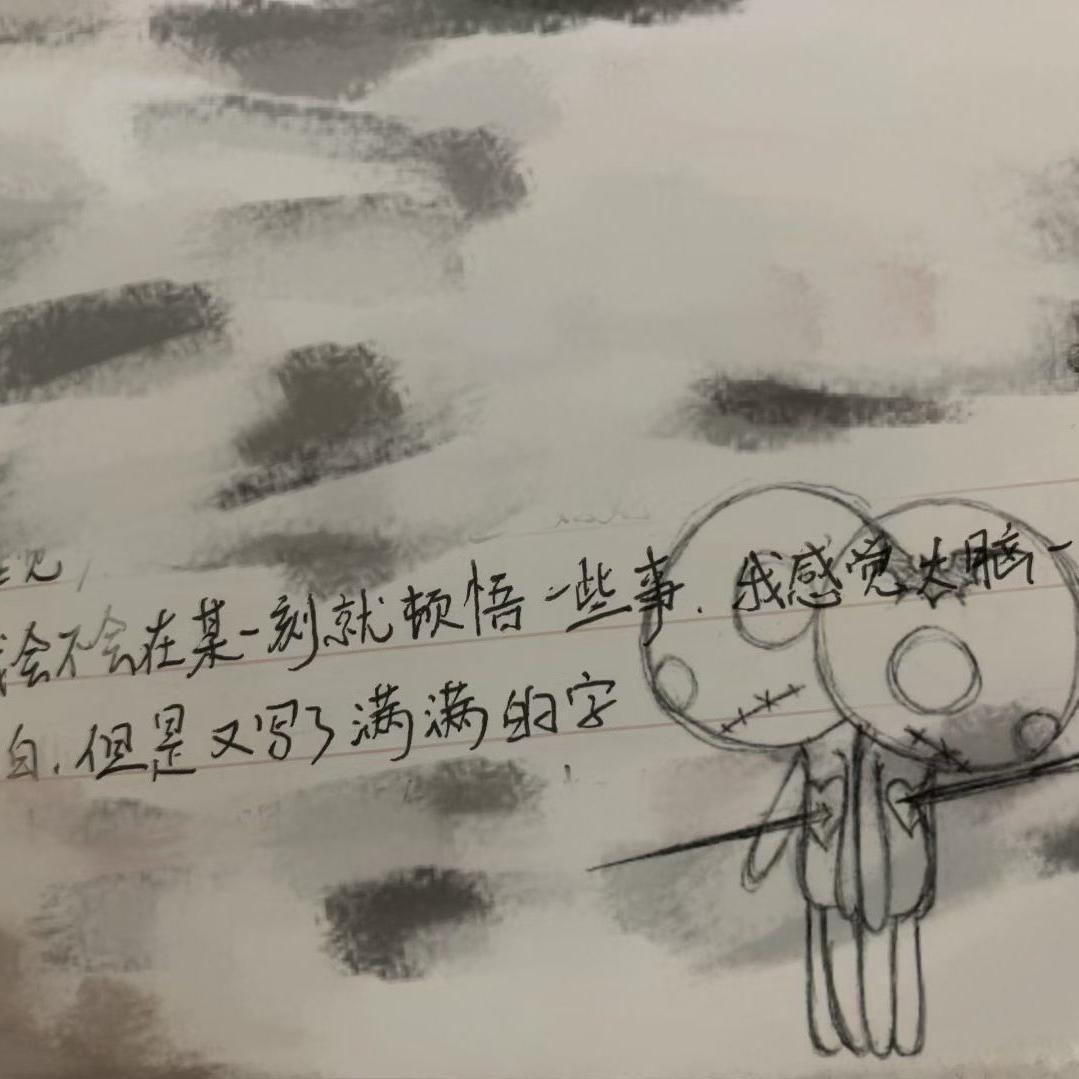 会不会在某一刻就顿悟一些事.我感觉大脑一
白.但是又写了满满的字